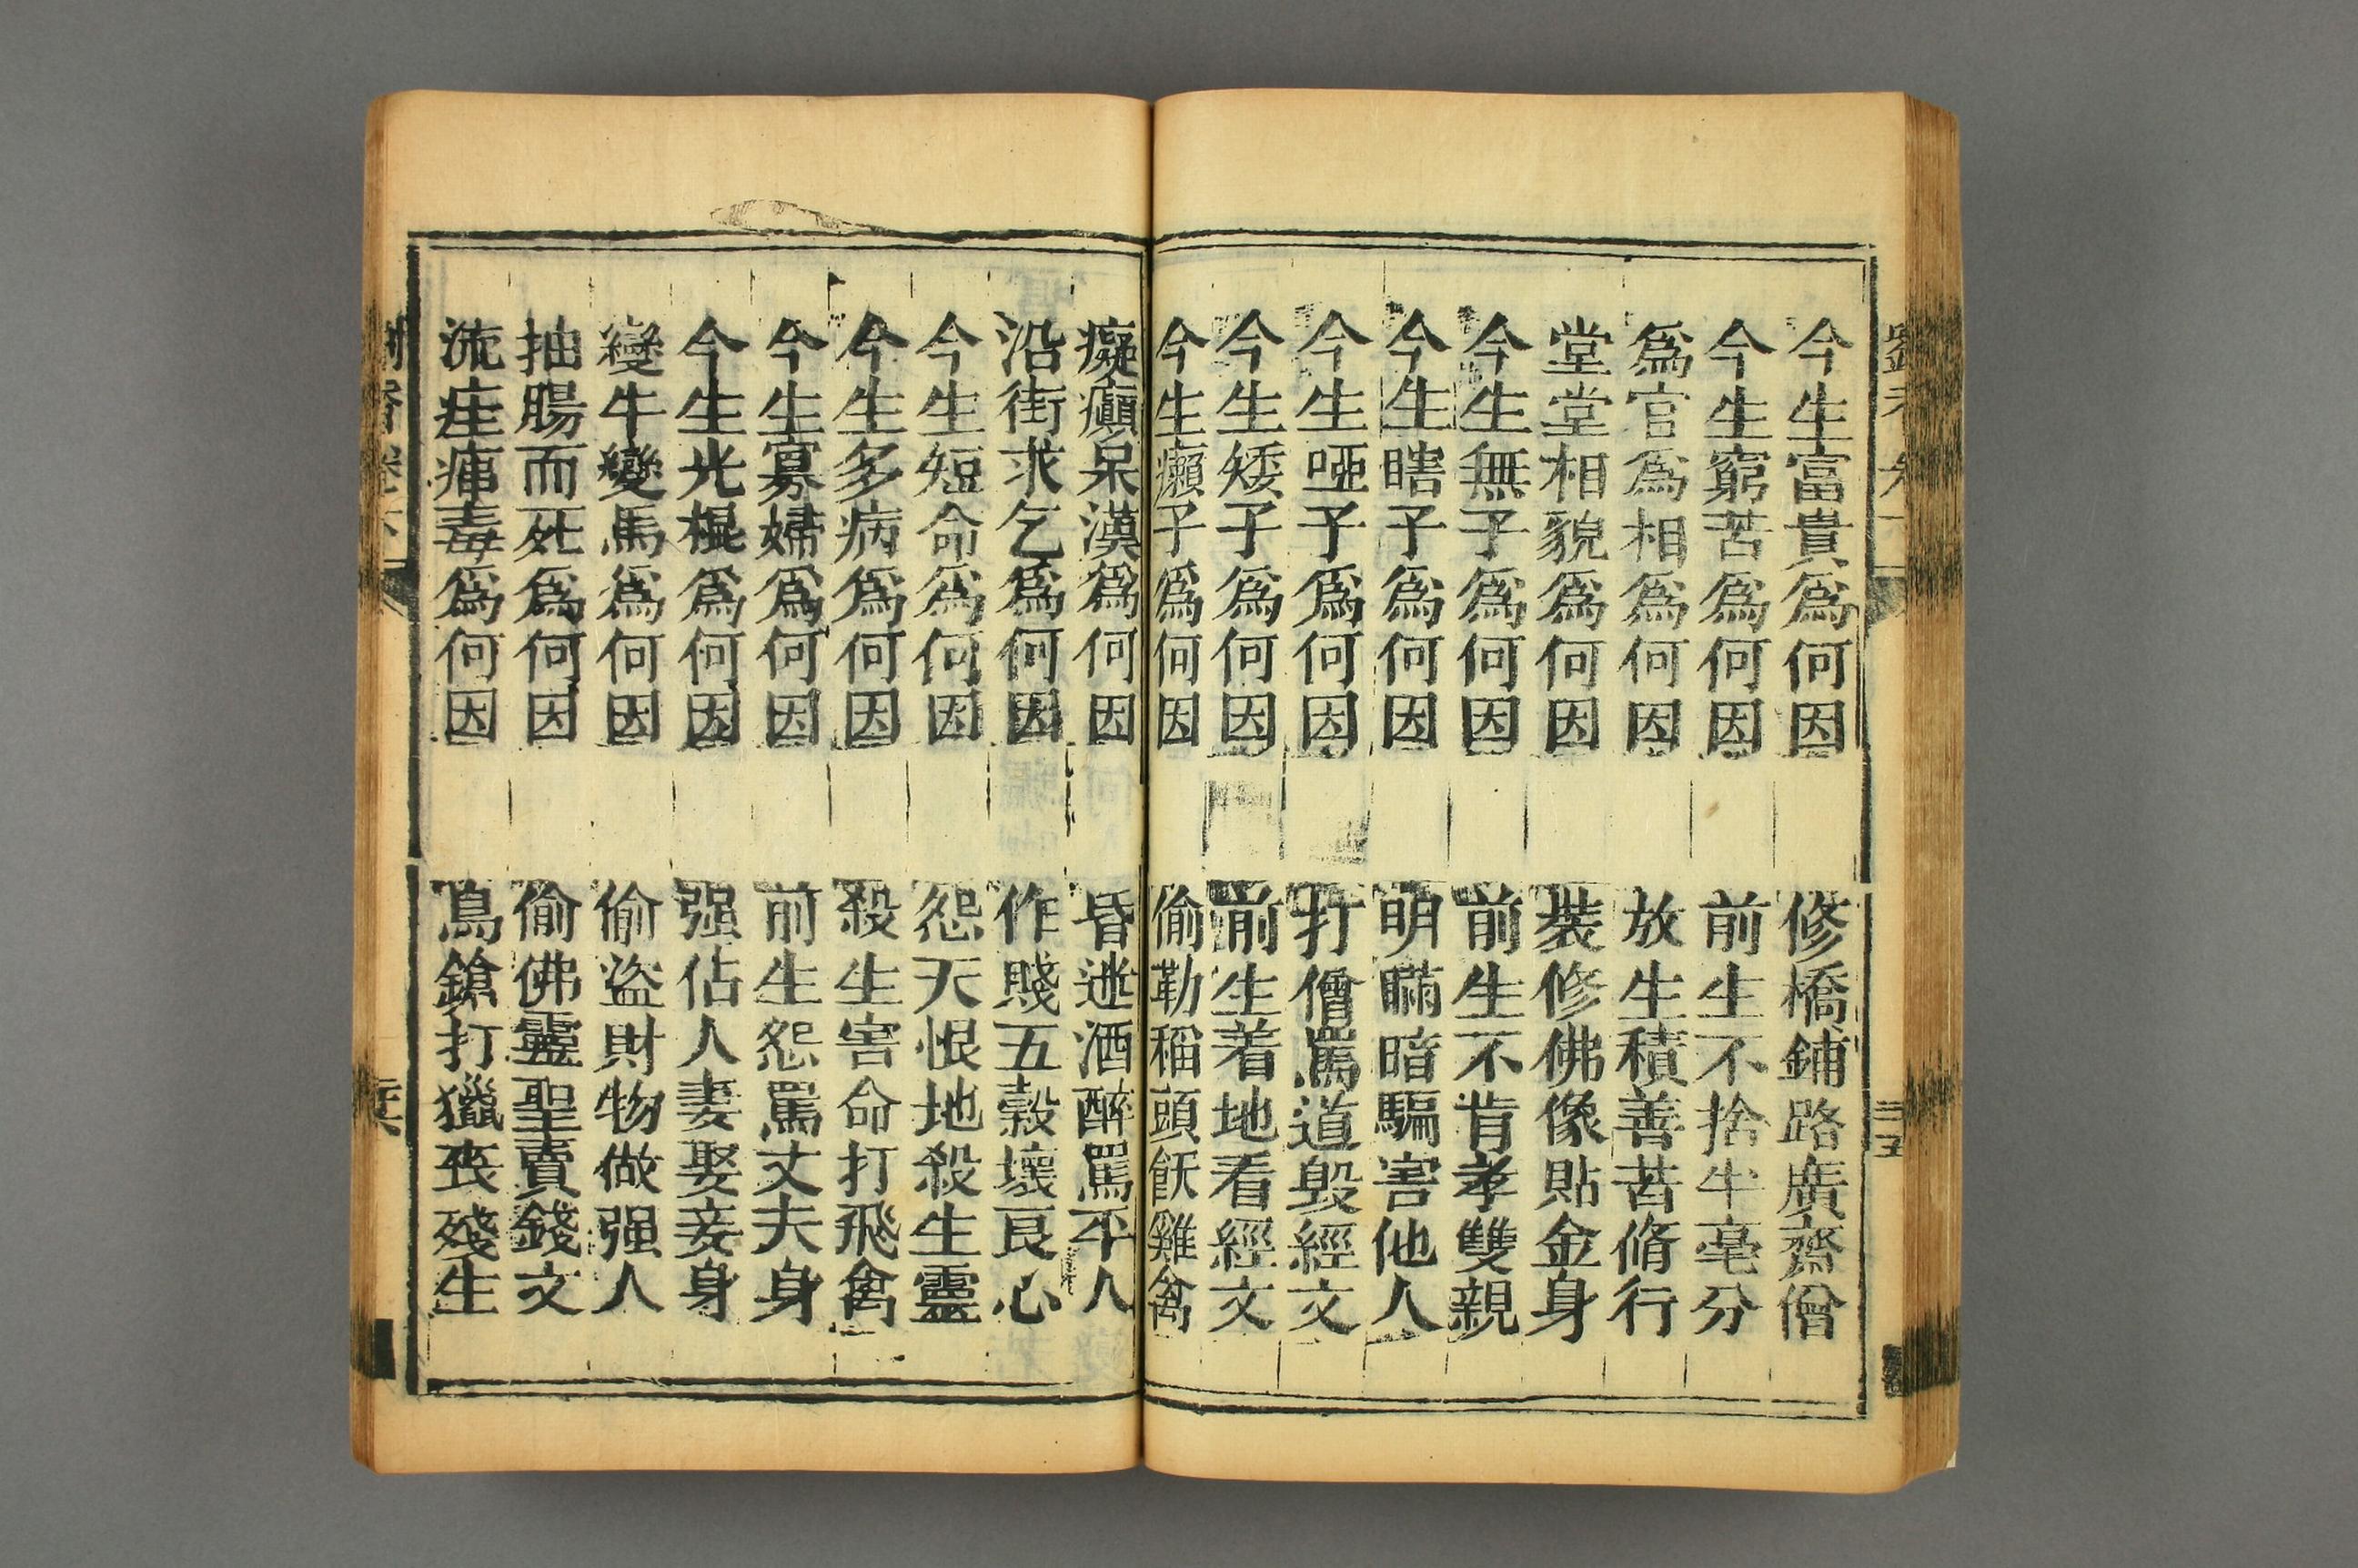 今生富貴爲何因　修橋鋪路廣齋僧
今生窮苦爲何因　前生不捨半毫分
爲官爲相爲何因　放生積善苦脩行
堂堂相貌爲何因　裝修佛像貼金身
今生無子爲何因　前生不肯孝雙親
今生瞎子爲何因　明瞞暗騙害他人
今生啞子爲何因　打僧罵道毀經文
今生矮子爲何因　前生着地看經文
今生癩子爲何因　偷勒稻頭飫雞禽
癡癲呆漢爲何因　昏迷酒醉罵平人
沿街求乞爲何因　作賤五穀壞良心
今生短命爲何因　怨天恨地殺生靈
今生多病爲何因　殺生害命打飛禽
今生寡婦爲何因　前生怨罵丈夫身
今生光棍爲何因　强佔人妻娶妾身
變牛變馬爲何因　偷盜財物做强人
抽腸而死爲何因　偷佛靈聖賣錢文
流疰痛毒爲何因　鳥鎗打獵丧殘生